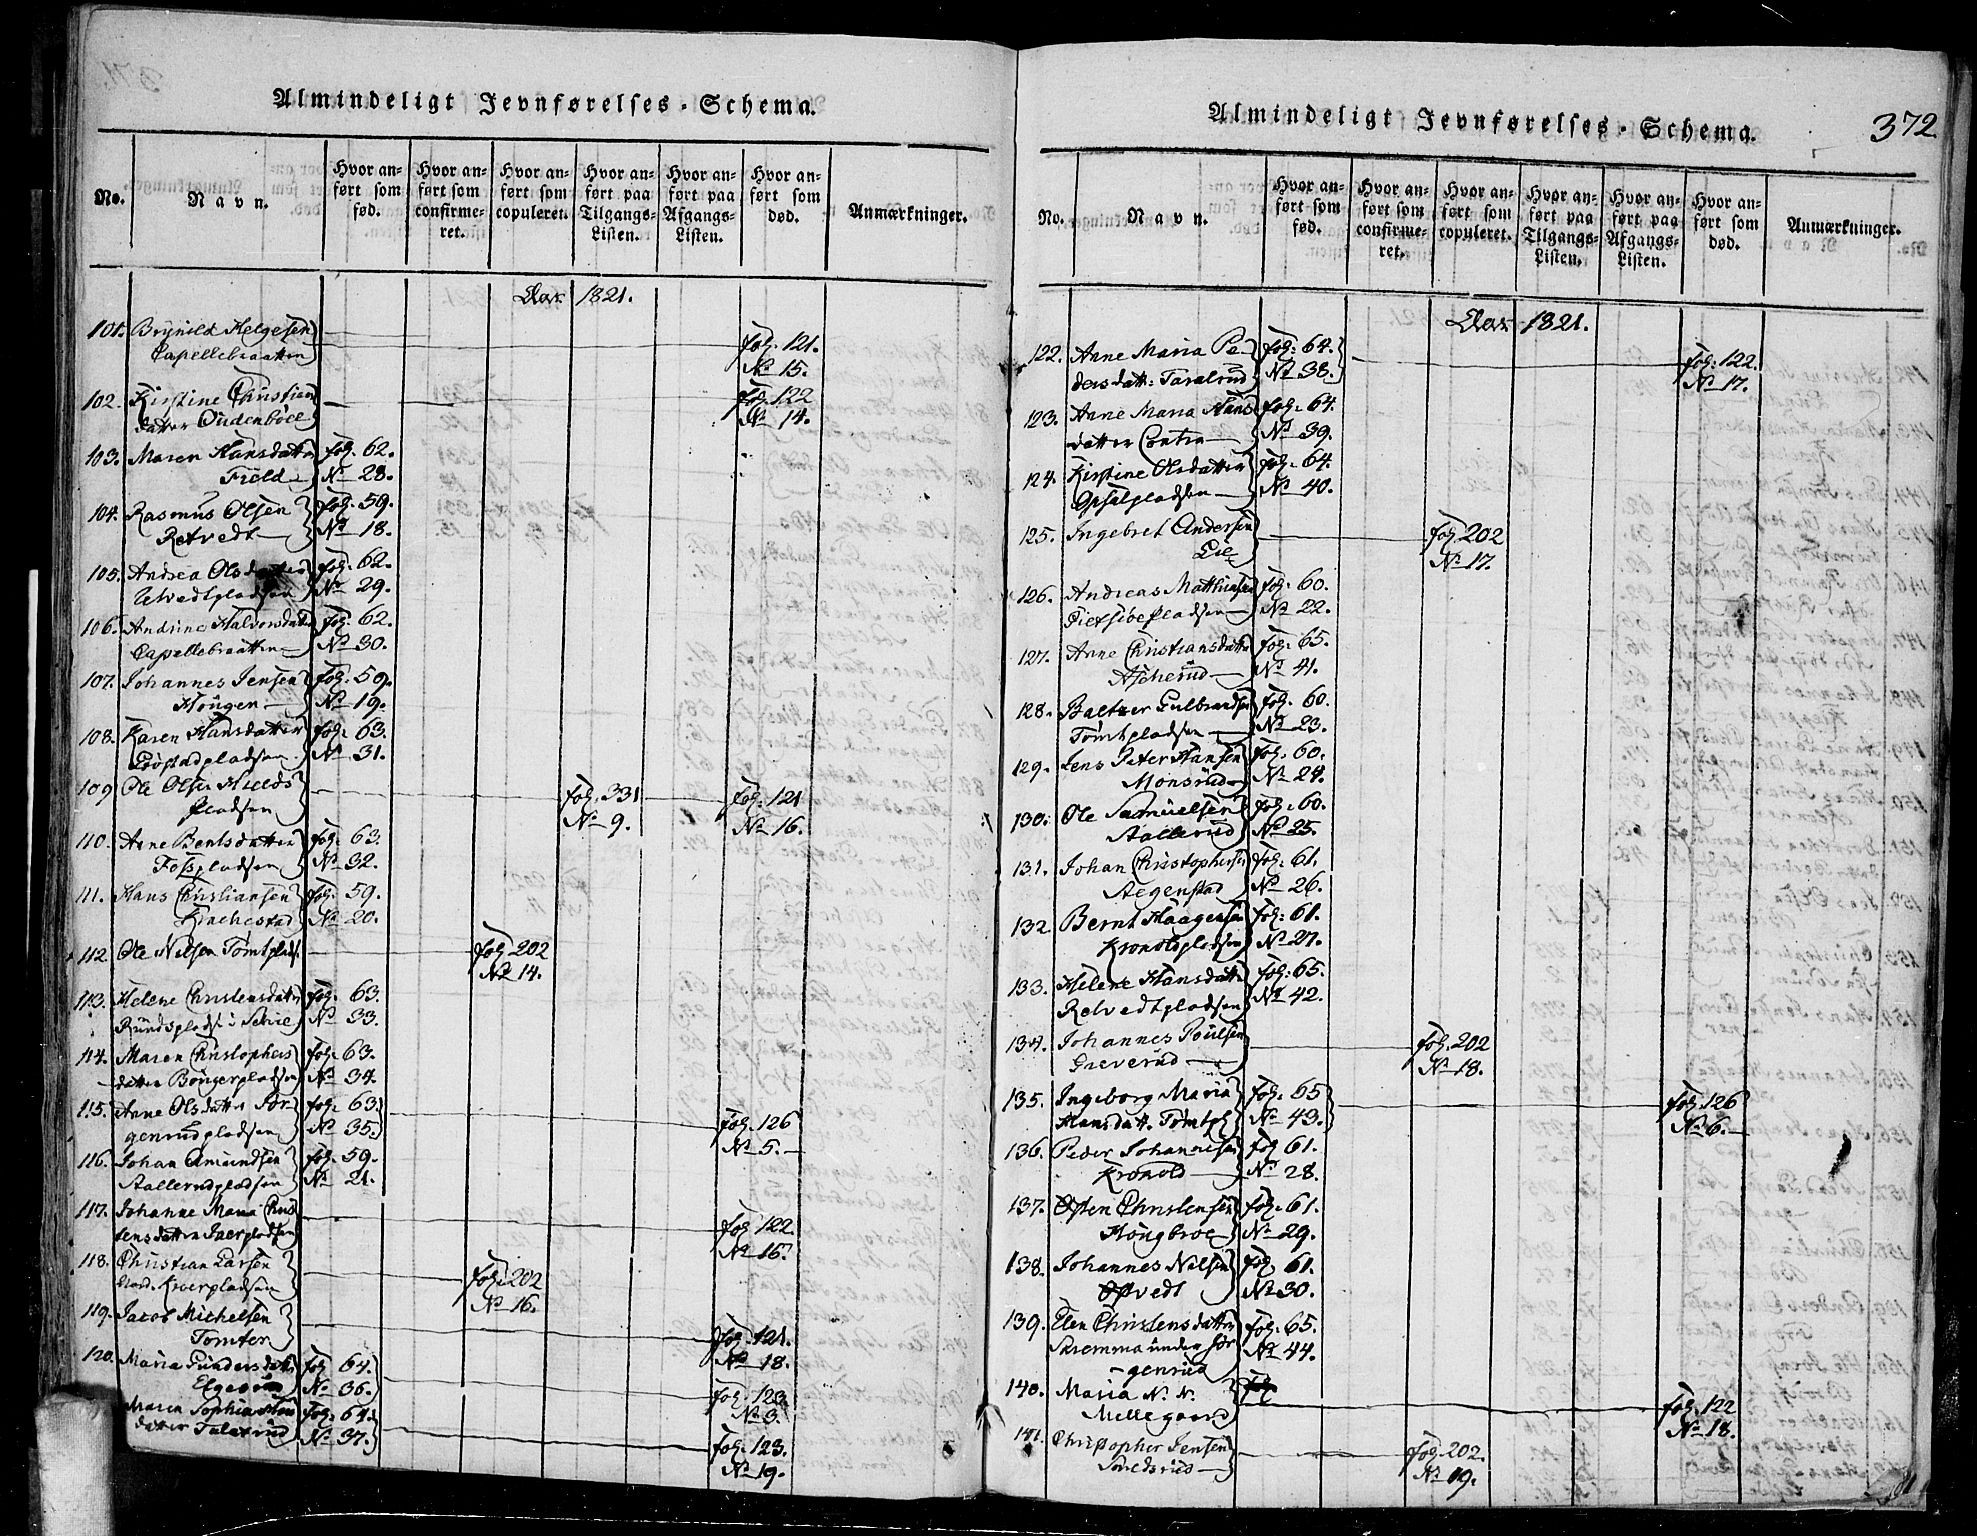 Almindeligt Jevnførelses-Schema.
No.
Navn.
Hvor an-
ført som
fød.
Hvor an-
ført som
confirme-
ret.
Hvor an-
ført som
copuleret.
Hvor an-
ført paa
Tilgangs-
Listen.
Hvor an-
ført paa
Afgangs-
Listen.
Hvor an-
ført som
død.
Anmærkninger.
Aar 1821.
101. Brynild Helgesen fol. 121.
Capellebraatten No 15.
102. Kirstine Christians fol. 122
datter No 14.
103. Maren Hansdatter fol. 62.
Field No 28.
104. Rasmus Olsen fol. 59.
Retvedt No 18.
105. Andrea Olsdatter fol. 62.
No 29.
106. Andrine Halvorsdatter fol. 62.
Capellebraatten No 30.
107. Johannes Jensen fol. 59.
Hougen No 19.
108. Karen Hansdatter fol. 63.
No 31.
109 Ole Olsen fol. 331 fol. 121
Pladsen No 9. No 16.
110. Anne Bentsdatter fol. 63.
Fosspladsen No 32.
111. Hans Christiansen fol. 59.
Krachestad No 20.
112. Ole Nilsen Tomtplads fol. 202
No 14.
113. Helene Christensdatter fol. 63.
No 33.
114. Maren Christophers fol. 63.
datter Bongerpladsen No 34.
115. Anne Olsdatter Sør- fol. 63. fol. 126
genrudpladsen No 35. No 5.
116. Johan Amundsen fol. 59.
Aallerudpladsen No 21.
117. Johanne Maria Chris fol. 122.
tensdatter No 16.
118. Christian Larsen fol. 202
Kroerpladsen No 16.
119. Jacob Michelsen fol. 121.
Tomter No 18.
120. Maria Gundersdatter fol. 64. fol. 123
No 36. No 3.
Maren Sophia Hans fol. 64. fol. 123.
datter No 37. No 19.
Almindeligt Jevnførelses-Schema.
372
No.
Navn.
Hvor an-
ført som
fød.
Hvor an-
ført som
confirme-
ret.
Hvor an-
ført som
copuleret.
Hvor an-
ført paa
Tilgangs-
Listen.
Hvor an-
ført paa
Afgangs-
Listen.
Hvor an-
ført som
død.
Anmærkninger.
Aar 1821.
122. Anne Maria Pe- fol. 64. fol. 122.
dersdatt: Taralrud No 38. No 17.
123. Anne Maria Hans fol. 64.
datter No 39.
124. Kirstine Olsdatter fol. 64.
Opsalpladsen No 40.
125. Ingebret Andersen fol. 202
Lie No 17.
126. Andreas Matthiasen fol. 60.
No 22.
127. Anne Christiansdatter fol. 65.
Ascherud No 41.
128. Baltzer Gulbrandsen fol. 60.
Tomtpladsen No 23.
129. Jens Peter Hansen fol. 60.
Monsrud No 24.
130. Ole Samuelsen fol. 60.
Aallerud No 25.
131. Johan Christophersen fol. 61.
Aegenstad No 26.
132 Bernt Haagensen fol. 61.
Kronoldpladsen No 27.
133. Helene Hansdatter fol. 65.
Retvedtpladsen No 42.
134. Johannes Poulsen fol. 202
Greverud No 18.
135. Ingeborg Maria fol. 65 fol. 126
Hansdatt. Tomtpl. No 43. No 6.
136. Peder Johannesen fol. 61.
Kronold No 28.
137. Østen Christensen fol. 61.
Hougbroe No 29.
138. Johannes Nilsen fol. 61.
Østvedt No 30.
139. Elen Christensdatter fol. 65.
Skremma under Sør No 44.
-genrud
140. Maria N. N. fol. 122
Mellegaard No 18.
141. Christopher Jensen fol. 202.
No 19.